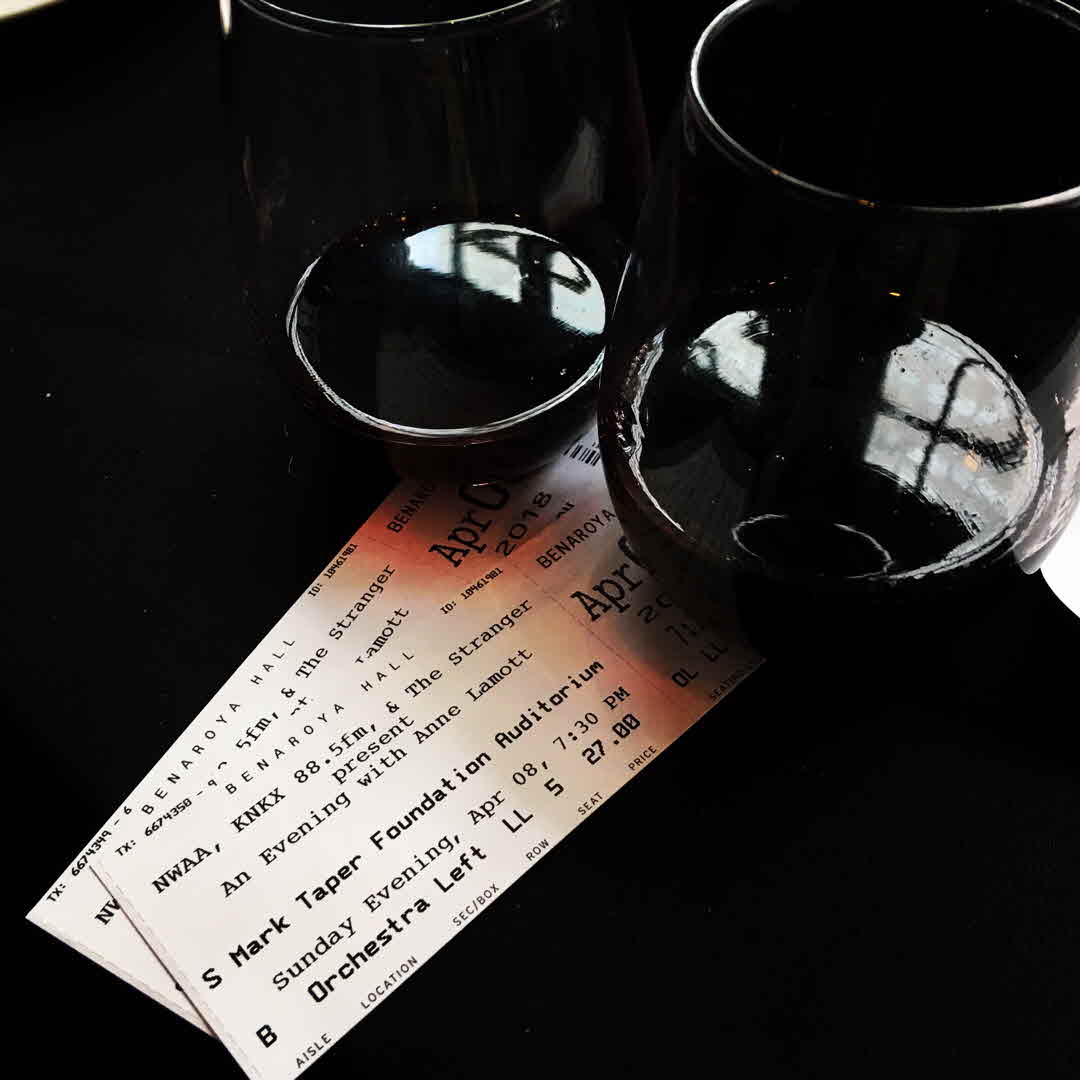 BENAROYA
Apr
2018
ID: 18461981
BENAROYA HALL
5fm, & The Stranger
Lamott
TX: 6674349 - 6
TX: 6674350 -
BENAROYA HALL
ID: 18461981
NWAA, KNKX 88.5fm, & The Stranger
present
An Evening with Anne Lamott
S Mark Taper Foundation Auditorium
Sunday Evening, Apr 08, 7:30 PM
Orchestra Left LL 5 27.00
B
AISLE LOCATION SEC/BOX ROW SEAT PRICE
BENAROYA
Apr
OL LL